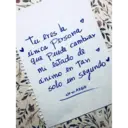 Tu eres la
única Persona
que Puede cambiar
mi estado de
animo en tan
solo un segundo